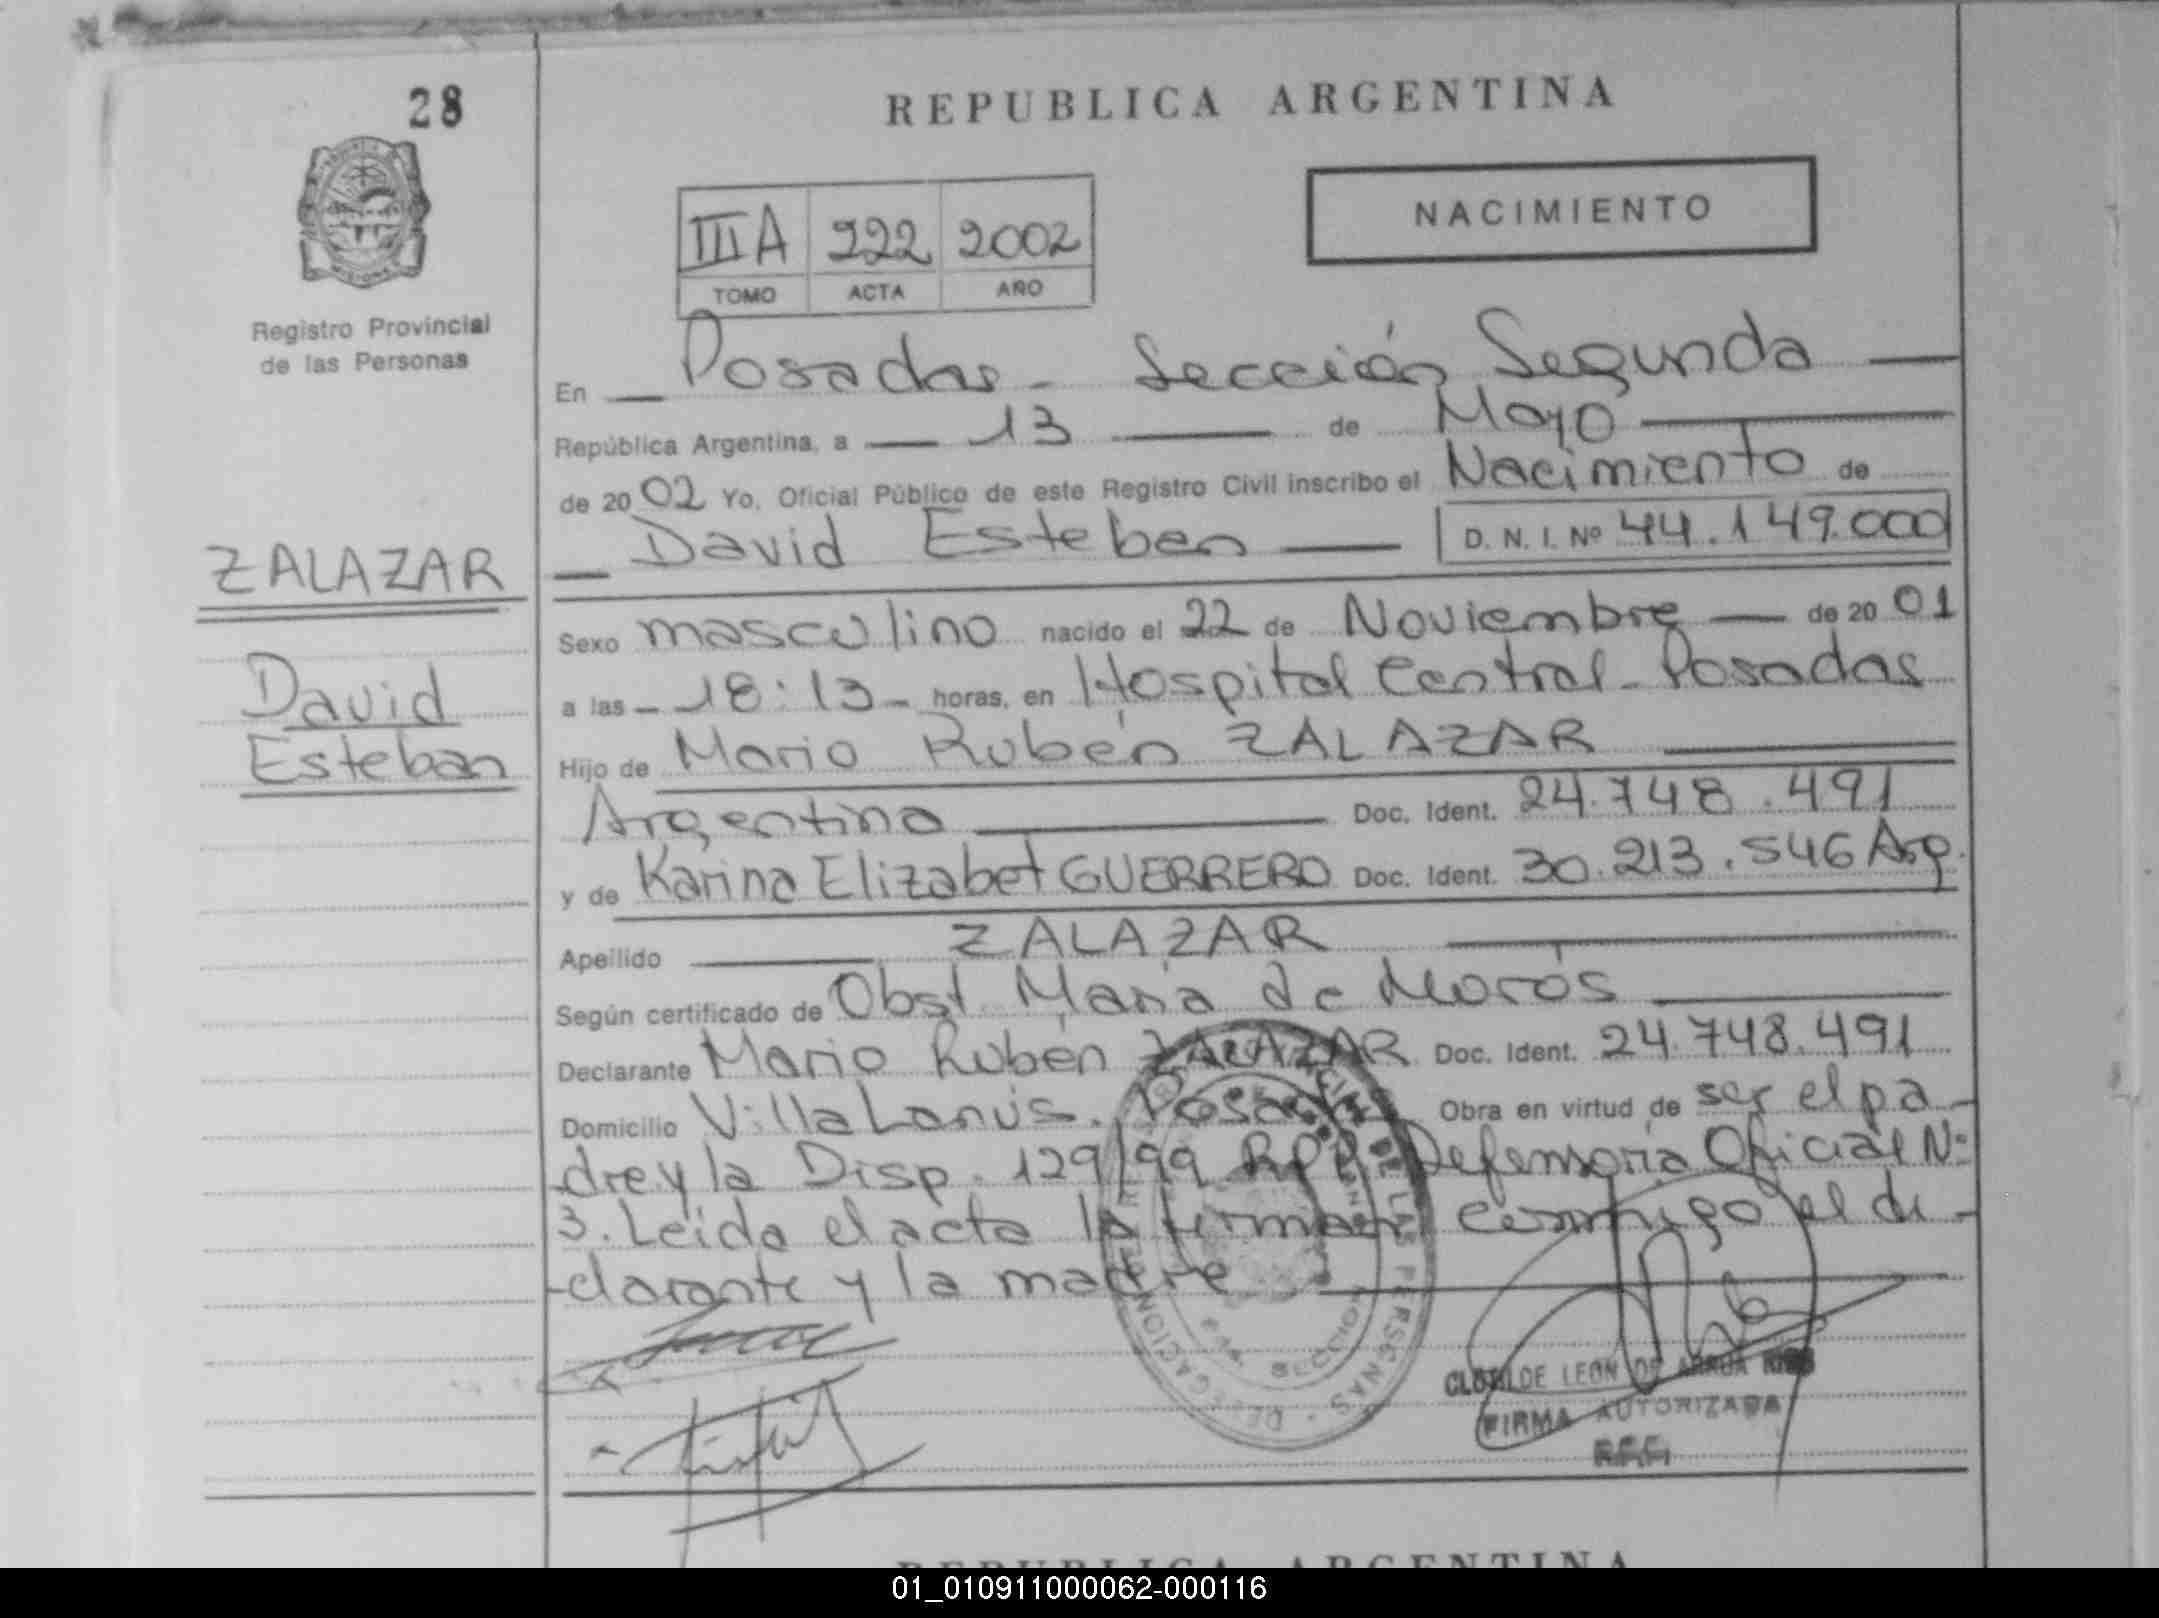 28
REPUBLICA ARGENTINA
NACIMIENTO
IIIA 222 2002
TOMO ACTA AÑO
Registro Provincial
de las Personas
En Posadas - Sección Segunda
República Argentina, a 13 de Mayo
de 2002 Yo, Oficial Público de este Registro Civil inscribo el Nacimiento de
David Esteban D. N. I. Nº 44.149.000
ZALAZAR
David
Esteban
Sexo masculino nacido el 22 de Noviembre de 2001
a las - 18:13 - horas, en Hospital Central - Posadas
Hijo de Mario Rubén ZALAZAR
Argentina Doc. Ident. 24.748.491
y de Karina Elizabet GUERRERO Doc. Ident. 30.213.546 Arg.
Apellido ZALAZAR
Según certificado de Obst. Maria de
Declarante Mario Rubén ZALAZAR Doc. Ident. 24.748.491
Domicilio Villa Lanús. Posadas Obra en virtud de ser el pa-
dre y la Disp. 129/99 RPP. Defensoría Oficial Nº
3. Leida el acta la firman conmigo el de-
clarante y la madre
DELEGACION DE LAS PERSONAS
SECCION
CLOTILDE LEON DE ARRUA
FIRMA AUTORIZADA
REPUBLICA ARGENTINA
01_010911000062-000116